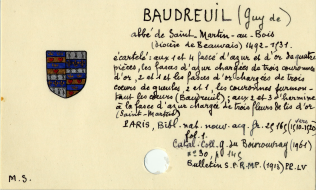 BAUDREUIL (Guy de)
abbé de Saint-Martin-au-Bois
(diocèse de Beauvais) 1492-1531.
écartelé : aux 1 et 4 fascé d'azur et d'or de quatre
pièces, les fasces d'azur chargées de trois couronnes
d'or, 2 et 1 et les fasces d'or chargées de trois
cœurs de gueules, 2 et 1, les couronnes surmon-
tant les cœurs (Baudreuil) ; aux 2 et 3 d'hermine
à la fasce d'azur chargée de trois fleurs de lis d'or
(Saint-
PARIS, Bibl. nat. nouv. acq. fr.
fol. 1.
Catal. Coll. G. du Bourouvray (1961)
n° 30, p. 145
Bulletin S.P.R.M.P. (1918) PL. LV
M.S.